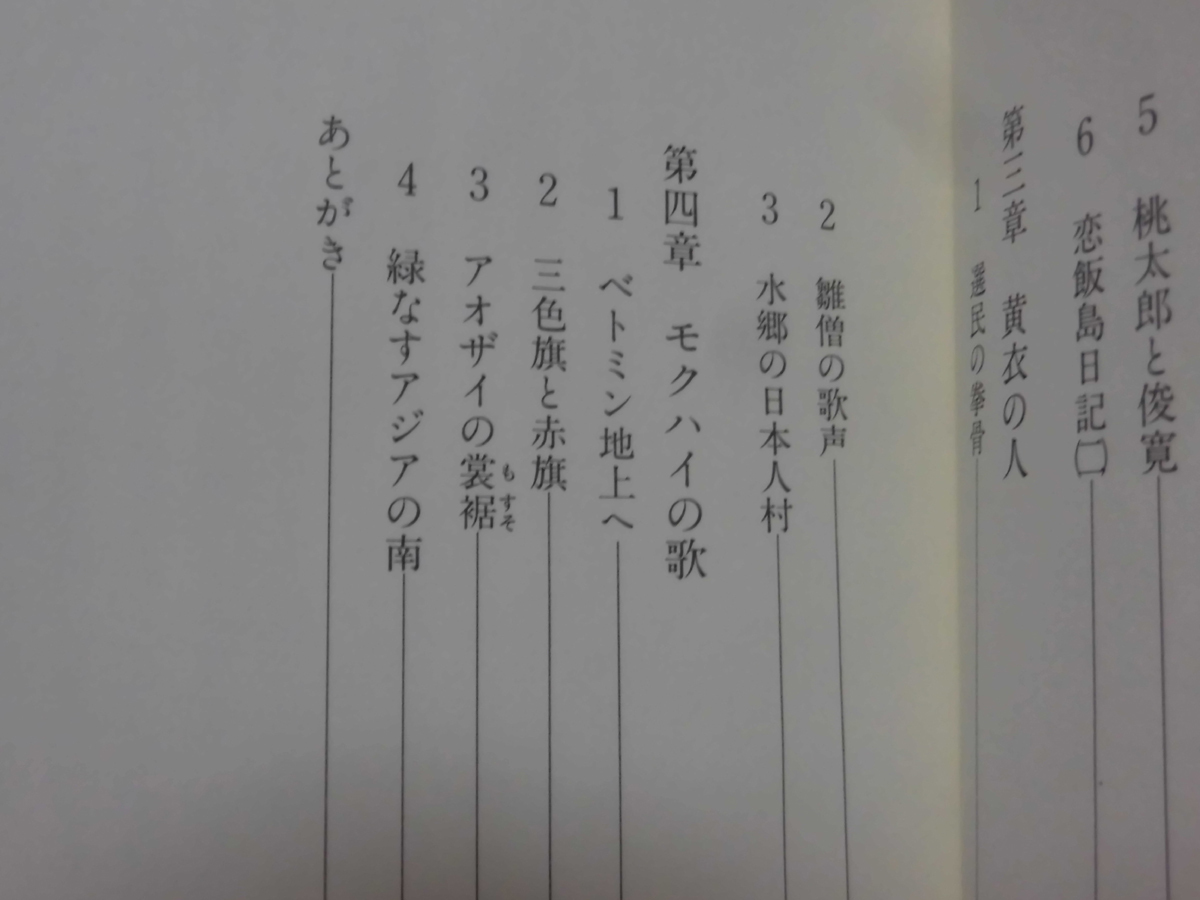 5 桃太郎と俊寛
6 恋飯島日記㈡
第三章 黄衣の人
1 選民の拳骨
2 雛僧の歌声
3 水郷の日本人村
第四章 モクハイの歌
1 ベトミン地上へ
2 三色旗と赤旗
3 アオザイの裳裾
もすそ
4 緑なすアジアの南
あとがき